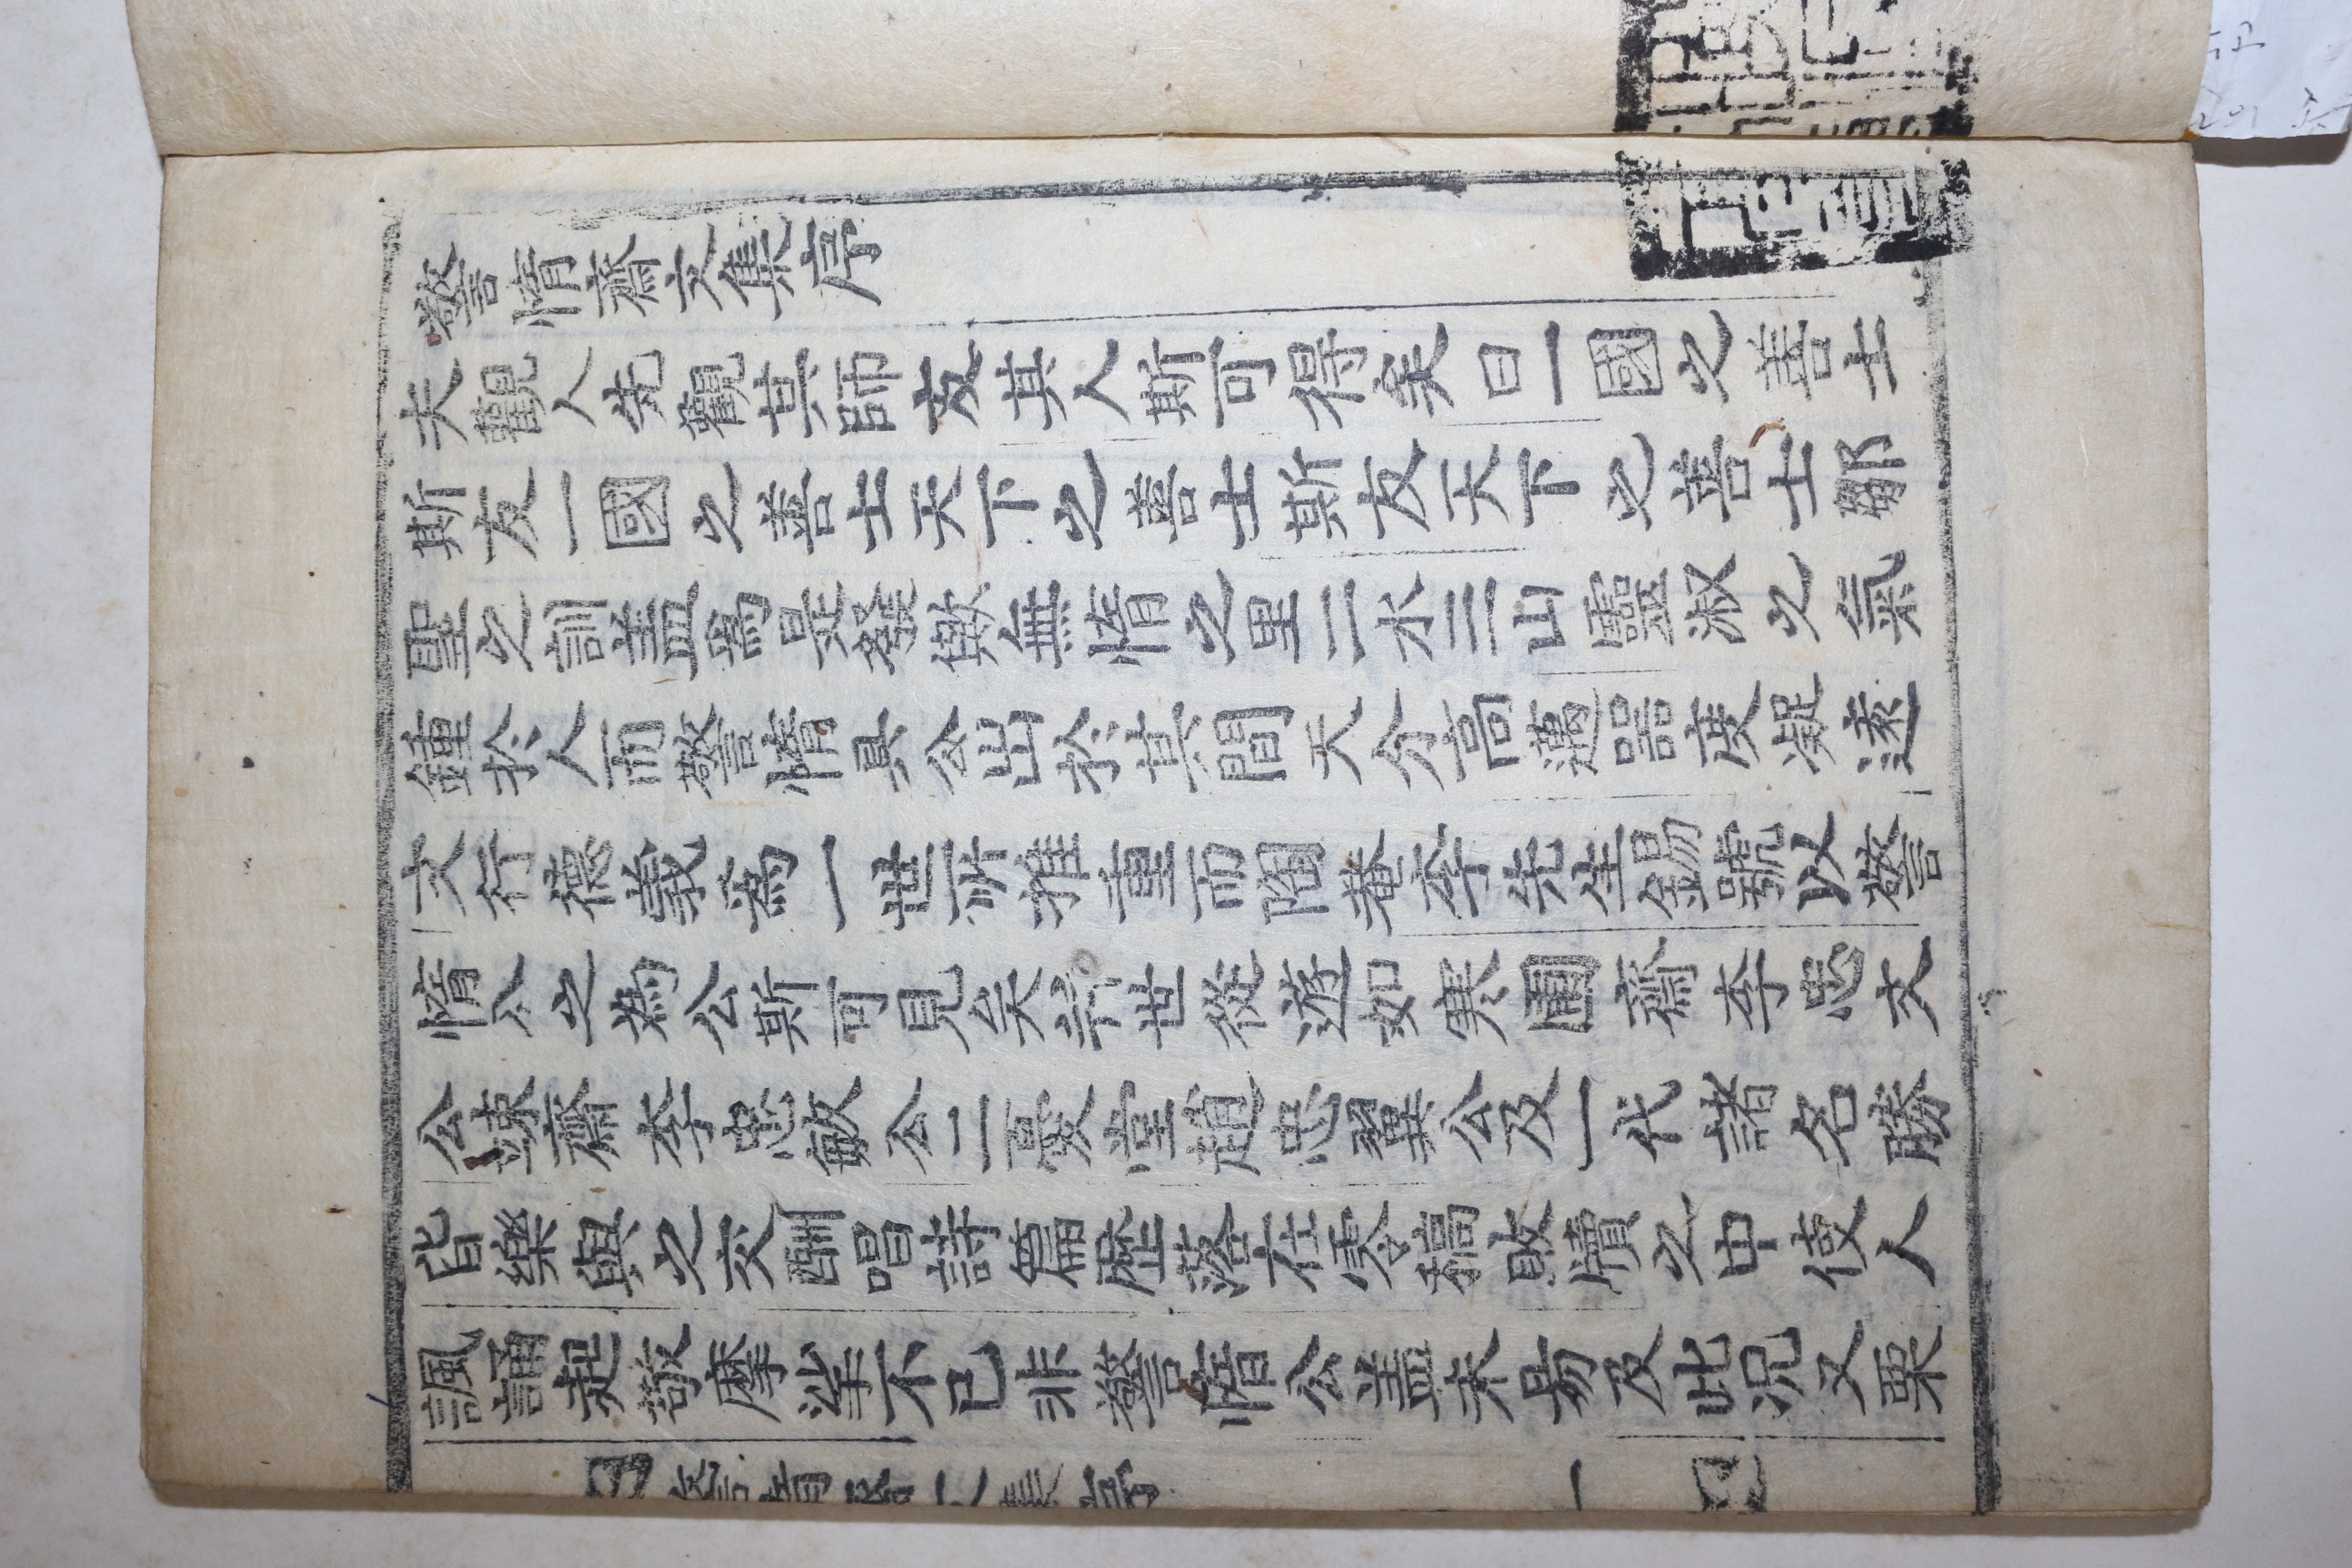 警惰齋文集序
夫觀人先觀其師友其人斯可得矣曰一國之善士
斯友一國之善士天下之善士斯友天下之善士鄒
聖之訓盖爲是發歟無惰之里二水三山靈淑之氣
鍾於人而警惰具公出於其間天分高邁器度凝遠
文行德義爲一世所推重而陶菴李先生錫號以警
惰公之為公斯可見矣並世從遊如寒圃齋李忠文
公竦齋李忠敏公二憂堂趙忠翼公及一代諸名勝
皆樂與之交酬唱詩篇歷落在零稿敗牘之中使人
諷誦起敬摩挲不已非警惰公盖未易及此况又栗
警惰齋文集序
一